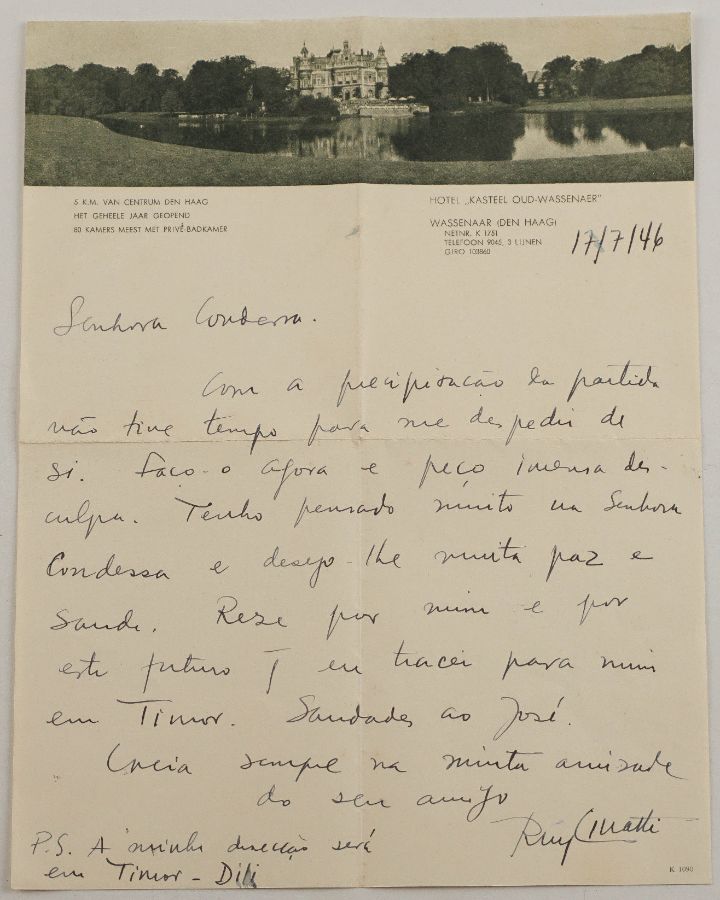 5 K.M. VAN CENTRUM DEN HAAG
HET GEHEELE JAAR GEOPEND
80 KAMERS MEEST MET PRIVÉ-BADKAMER
HOTEL „KASTEEL OUD-WASSENAER"
WASSENAAR (DEN HAAG)
NETNR. K 1751
TELEFOON 9045, 3 LIJNEN
GIRO 103860
17/7/46
Senhora Condessa.
Com a precipitação da partida
não tive tempo para me despedir de
si. Faço-o agora e peço imensa des-
culpa. Tenho pensado muito na Senhora
Condessa e desejo-lhe muita paz e
saude. Reze por mim e por
este futuro q eu tracei para mim
em Timor. Saudades ao José.
Creia sempre na minha amizade
do seu amigo
Ruy Cinatti
P.S. A minha direcção será
em Timor - Dili
K 1090